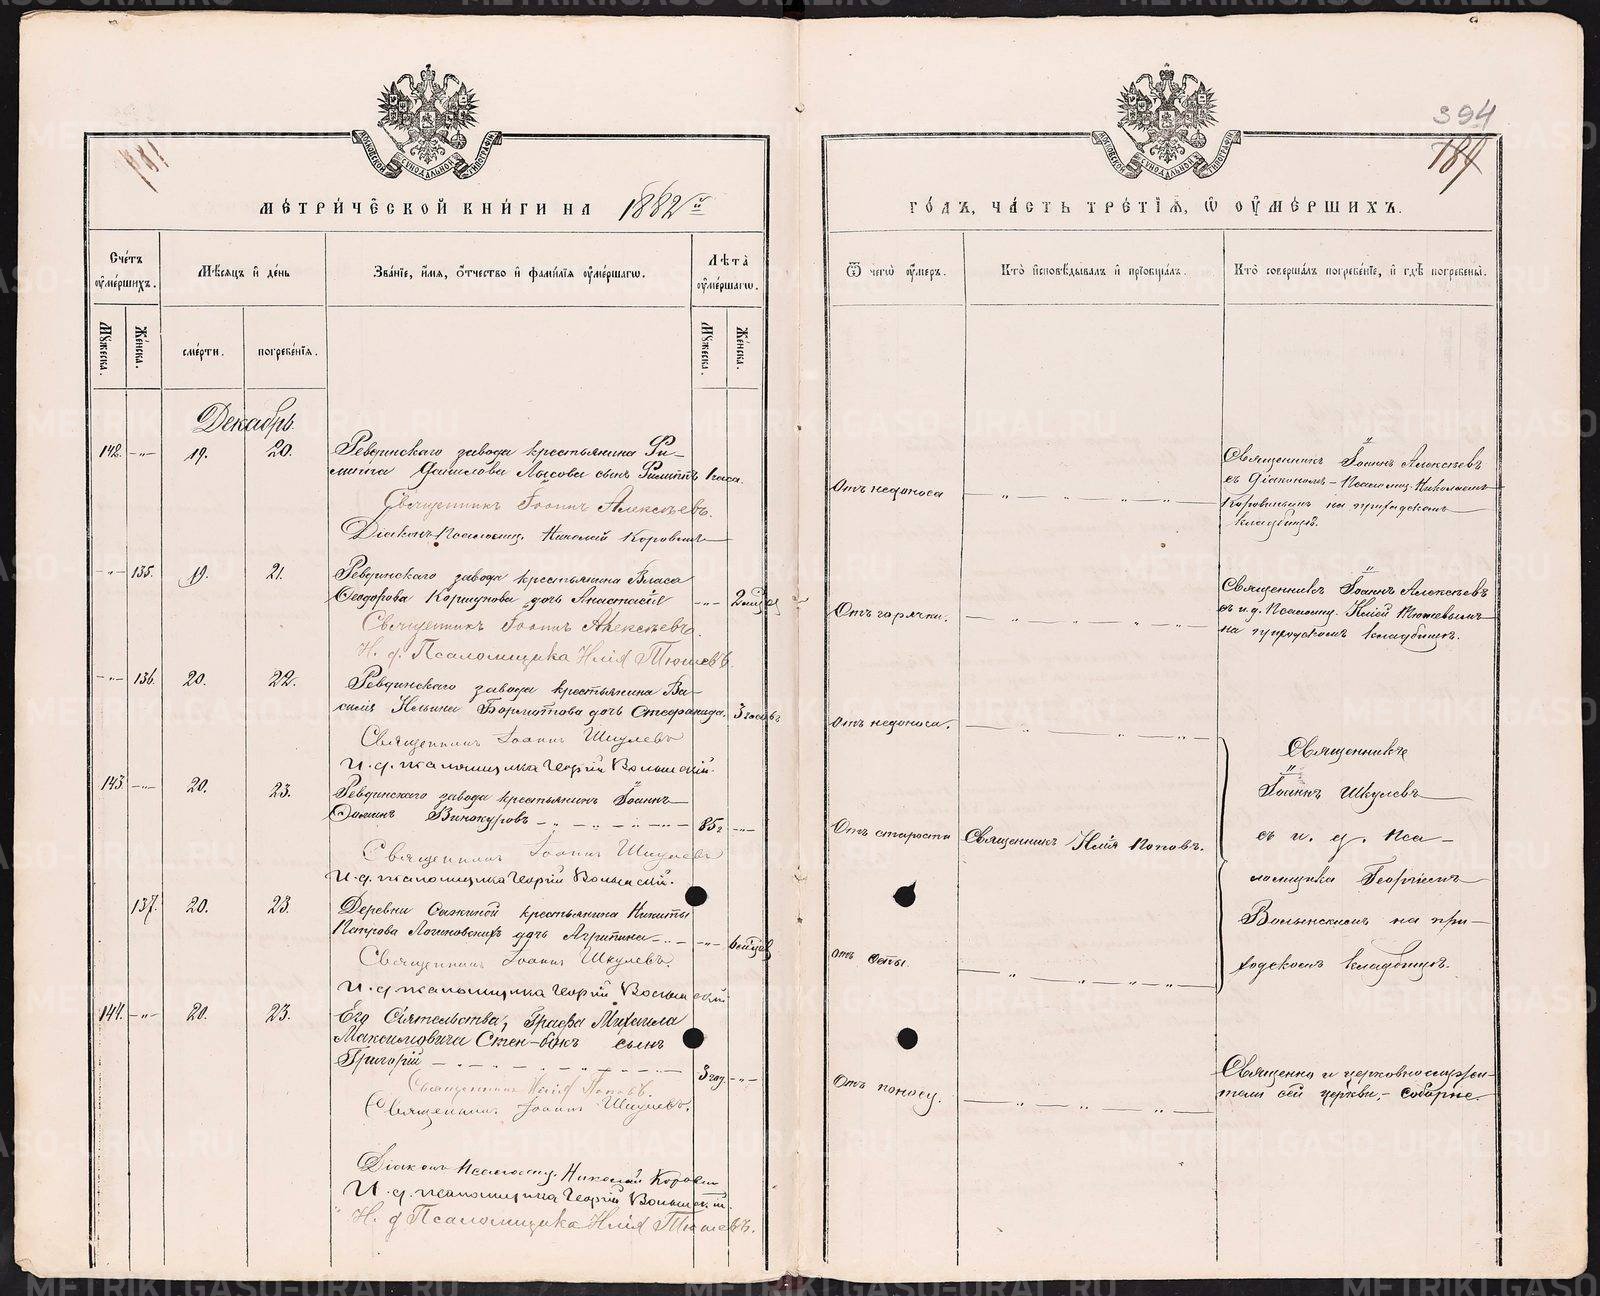 394
181
184
МОСКОВСКОЙ СѴНОДАЛЬНОЙ ТИПОГРАФІИ
МОСКОВСКОЙ СѴНОДАЛЬНОЙ ТИПОГРАФІИ
МЕТРИЧЕСКОЙ КНИГИ НА 1882й
ГОДЪ, ЧАСТЬ ТРЕТІЯ, Ѿ ОУМЕРШИХЪ.
Счетъ оумершихъ.
Мѣсяцъ и день
Званіе, имя, отчество и фамилія оумершагѡ.
Лѣта оумершагѡ.
Ѿ чегѡ оумеръ.
Кто исповѣдывалъ и пріобщалъ.
Кто совершалъ погребеніе, и гдѣ погребены.
Мужеска.
Женска.
смерти.
погребенія.
Мужеска.
Женска.
Декабрь.
142. -"- 19. 20. Ревдинскаго завода крестьянина Фи-
липпа Данилова Лысова сынъ Филиппъ 1 часа.
Священникъ Іоаннъ Алексѣевъ.
Діаконъ-Псаломщ. Николай Коровинъ
Отъ недоноса
Священникъ Іоаннъ Алексѣевъ
съ Діакономъ-Псаломщ. Николаемъ
Коровинымъ на приходскомъ
кладбищѣ.
-"- 135. 19. 21. Ревдинскаго завода крестьянина Власа
Ѳеодорова Коршунова дочь Анастасія -"- 2 мѣсяц
Священникъ Іоаннъ Алексѣевъ.
И. д. Псаломщика Илія Тюшевъ.
Отъ горячки.
Священникъ Іоаннъ Алексѣевъ
съ и.д. Псаломщ. Иліей Тюшевымъ
на приходскомъ кладбищѣ.
-"- 136. 20. 22. Ревдинскаго завода крестьянина Ва-
силія Ильина Бормотова дочь Стефанида. 3 часовъ
Священникъ Іоаннъ Шкулевъ
И.д. псаломщика Георгій Волынскій.
Отъ недоноса.
143. -"- 20. 23. Ревдинскаго завода крестьянинъ Іоаннъ
Винокуровъ 85 г. -"-
Священникъ Іоаннъ Шкулевъ
И.д. псаломщика Георгій Волынскій.
Отъ старости Священникъ Илія Поповъ.
Священникъ
Іоаннъ Шкулевъ
съ и. д. Пса-
ломщика Георгіемъ
Волынскимъ на при-
ходскомъ кладбищѣ.
137. 20. 23. Деревни Сажиной крестьянина Никиты
Петрова Логиновскихъ дочь Агрипина -"- 6 мѣсяц
Священникъ Іоаннъ Шкулевъ.
И.д. псаломщика Георгій Волынскій
Отъ оспы.
144. -"- 20. 23. Его Сіятельства, Графа Михаила
Максимовича Стен-бокъ сынъ
Григорій 3 год. -"-
Священникъ Илія Поповъ.
Священникъ. Іоаннъ Шкулевъ.
Діаконъ Псаломщ. Николай Коровинъ
И.д. псаломщика Георгій Волынскій.
И. д Псаломщика Илія Тюшевъ.
Отъ поносу.
Священно и церковнослужи-
тели сей церкви, - соборне.